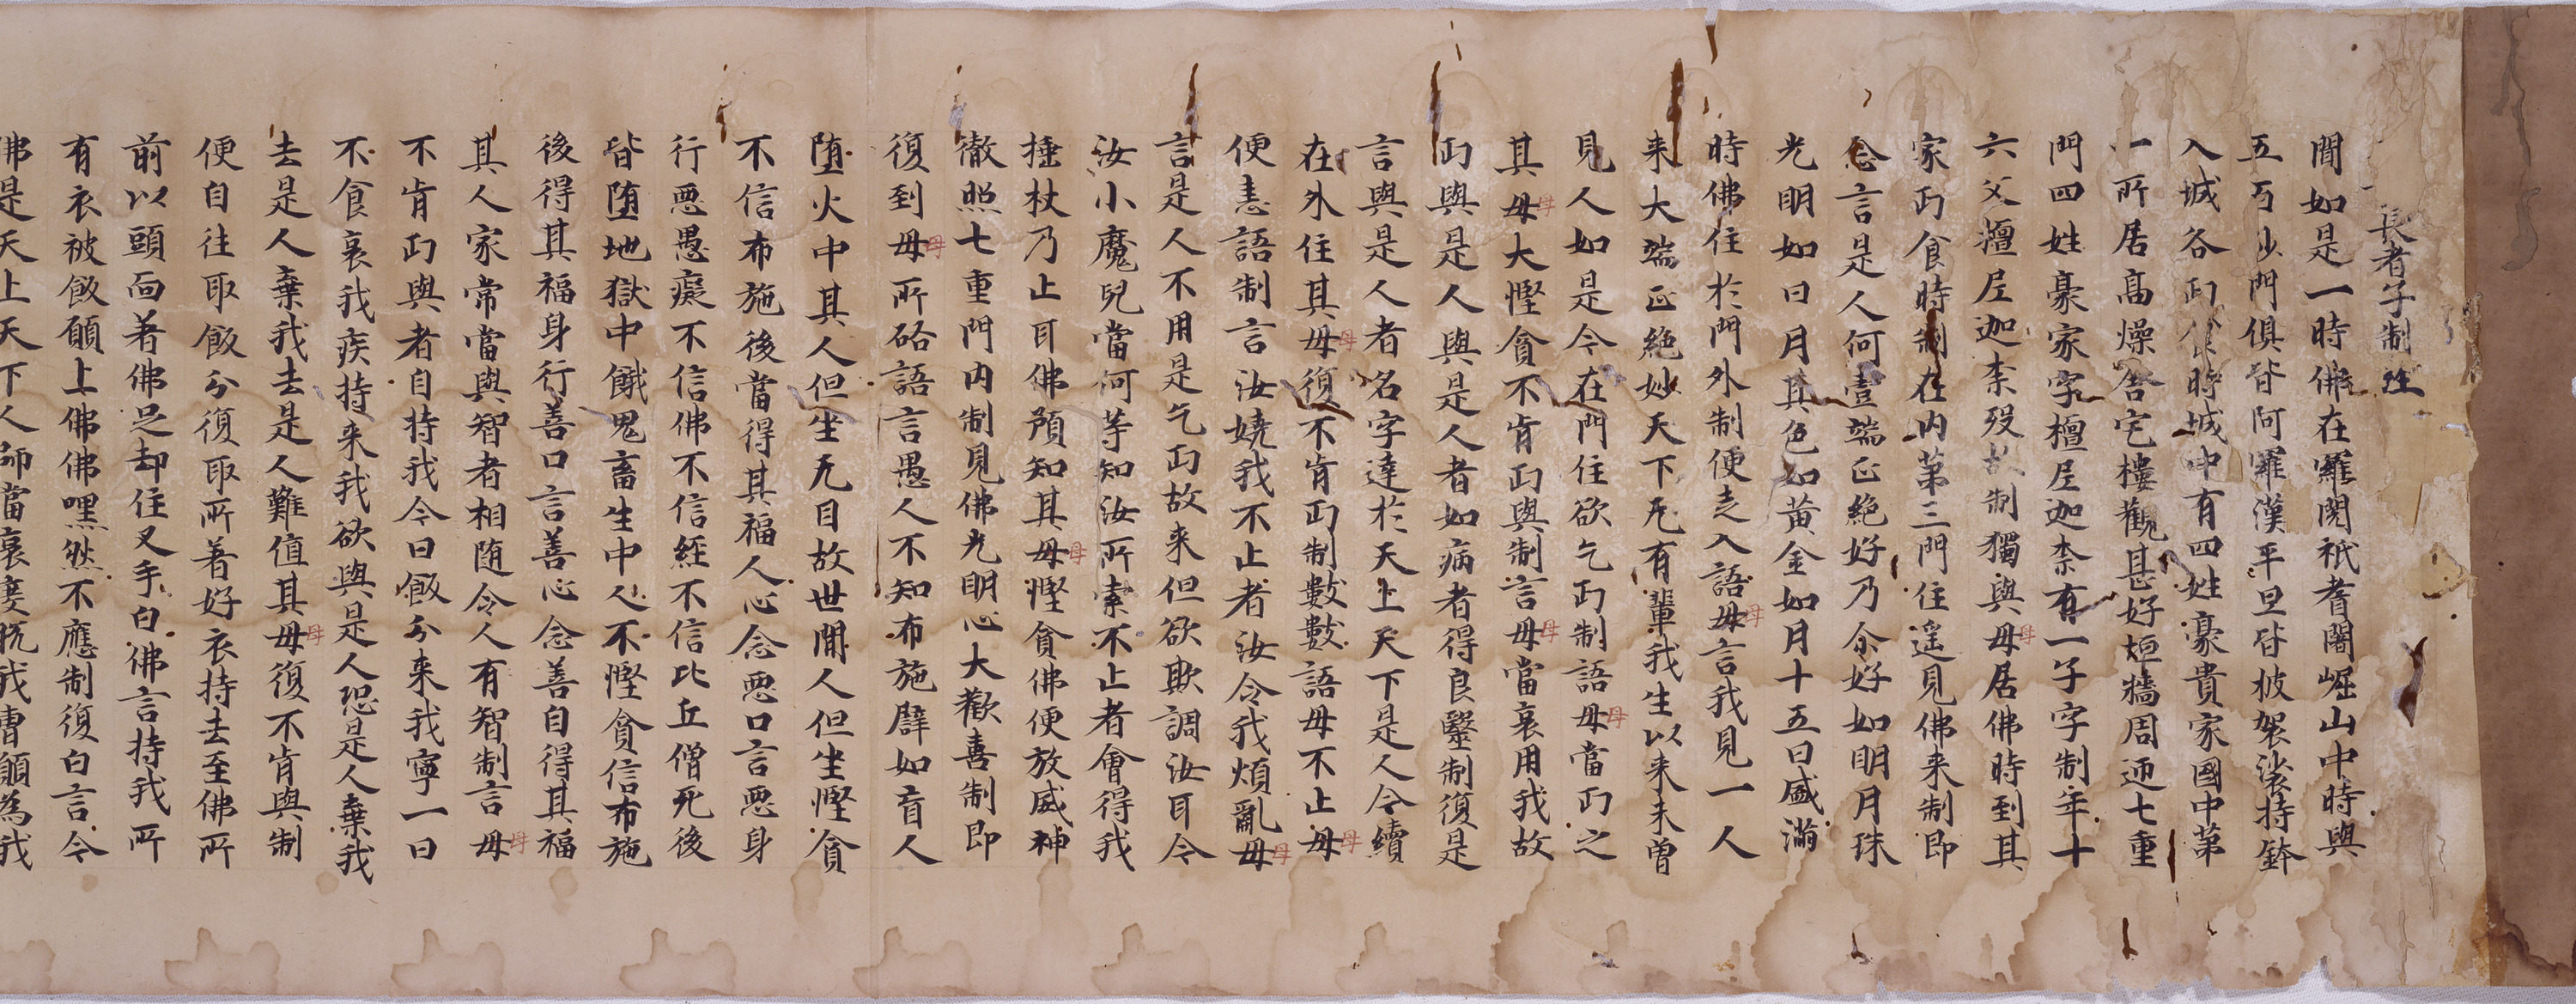 長者子制經
聞如是一時佛在羅閱祇耆闍崛山中時與
五百沙門俱皆阿羅漢平旦皆被袈裟持鉢
入城各匃食時城中有四姓豪貴家國中第
一所居高燥舍宅樓觀甚好垣牆周迊七重
門四姓豪家字檀尼迦柰有一子字制年十
六父檀尼迦柰歿故制獨與毋母居佛時到其
家匃食時制在內第三門住遙見佛来制即
念言是人何壹端正絕好乃尒好如明月珠
光明如日月其色如黃金如月十五日盛滿
時佛住於門外制便走入語毋母言我見一人
来大端正絕妙天下无有輩我生以来未曾
見人如是今在門住欲乞匃制語毋母當匃之
其毋母大慳貪不肯匃與制言毋母當哀用我故
匃與是人與是人者如病者得良毉制復是
言與是人者名字達於天上天下是人今續
在外住其毋母復不肯匃制數數語毋不止毋母
便恚語制言汝嬈我不止者汝令我煩亂毋母
言是人不用是乞匃故来但欲欺調汝耳今
汝小魔兒當何等知汝所索不止者會得我
捶杖乃止耳佛預知其毋母慳貪佛便放威神
徹照七重門內制見佛光明心大歡喜制即
復到毋母所硌語言愚人不知布施譬如盲人
堕火中其人但坐无目故世閒人但坐慳貪
不信布施後當得其福人心念惡口言惡身
行惡愚癡不信佛不信經不信比丘僧死後
皆墮地獄中餓鬼畜生中人不慳貪信布施
後得其福身行善口言善心念善自得其福
其人家常當與智者相随令人有智制言毋母
不肯匃與者自持我今日飯分来我寧一日
不食哀我疾持来我欲與是人恐是人棄我
去是人棄我去是人難值其毋母復不肯與制
便自往取飯分復取所著好衣持去至佛所
前以頭面著佛足却住叉手白佛言持我所
有衣被飯願上佛佛嘿然不應制復白言今
佛是天上天下人師當哀憂脫我曹願為我